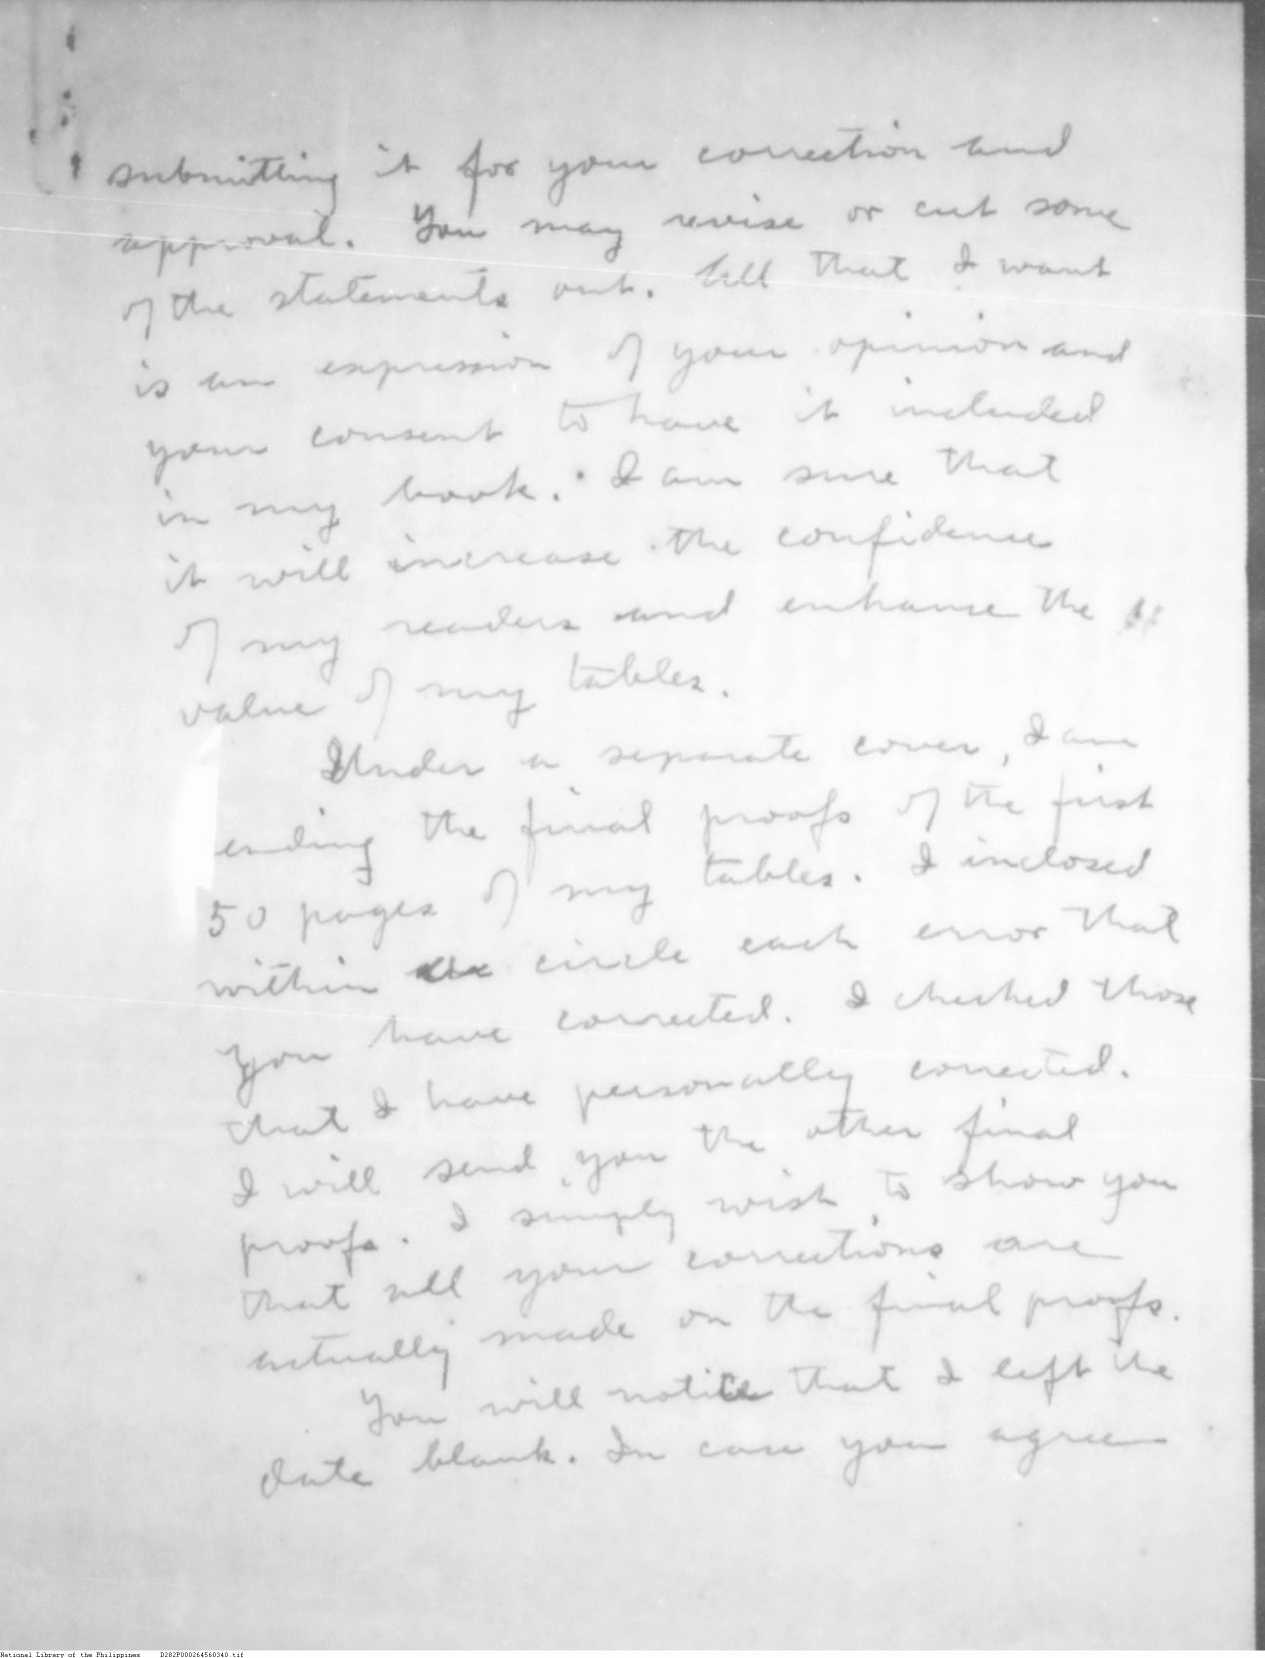 submitting it for your correction and
approval. You may revise or cut some
of the statements out. All that I want
is an expression of your opinion and
your consent to have it included
in my book. I am sure that
it will increase the confidence
of my readers and enhance the
value of my tables.
Under a separate cover, I am
ending the final proofs of the first
50 pages of my tables. I inclosed
within circle each error that
you have corrected. I checked those
that I have personally corrected.
I will send you the other final
proofs. I simply wish to show you
that all your corrections are
actually made on the final proofs.
You will notice that I left the
date blank. In case you agree
National Library of the Philippines D282P000264560340.tif